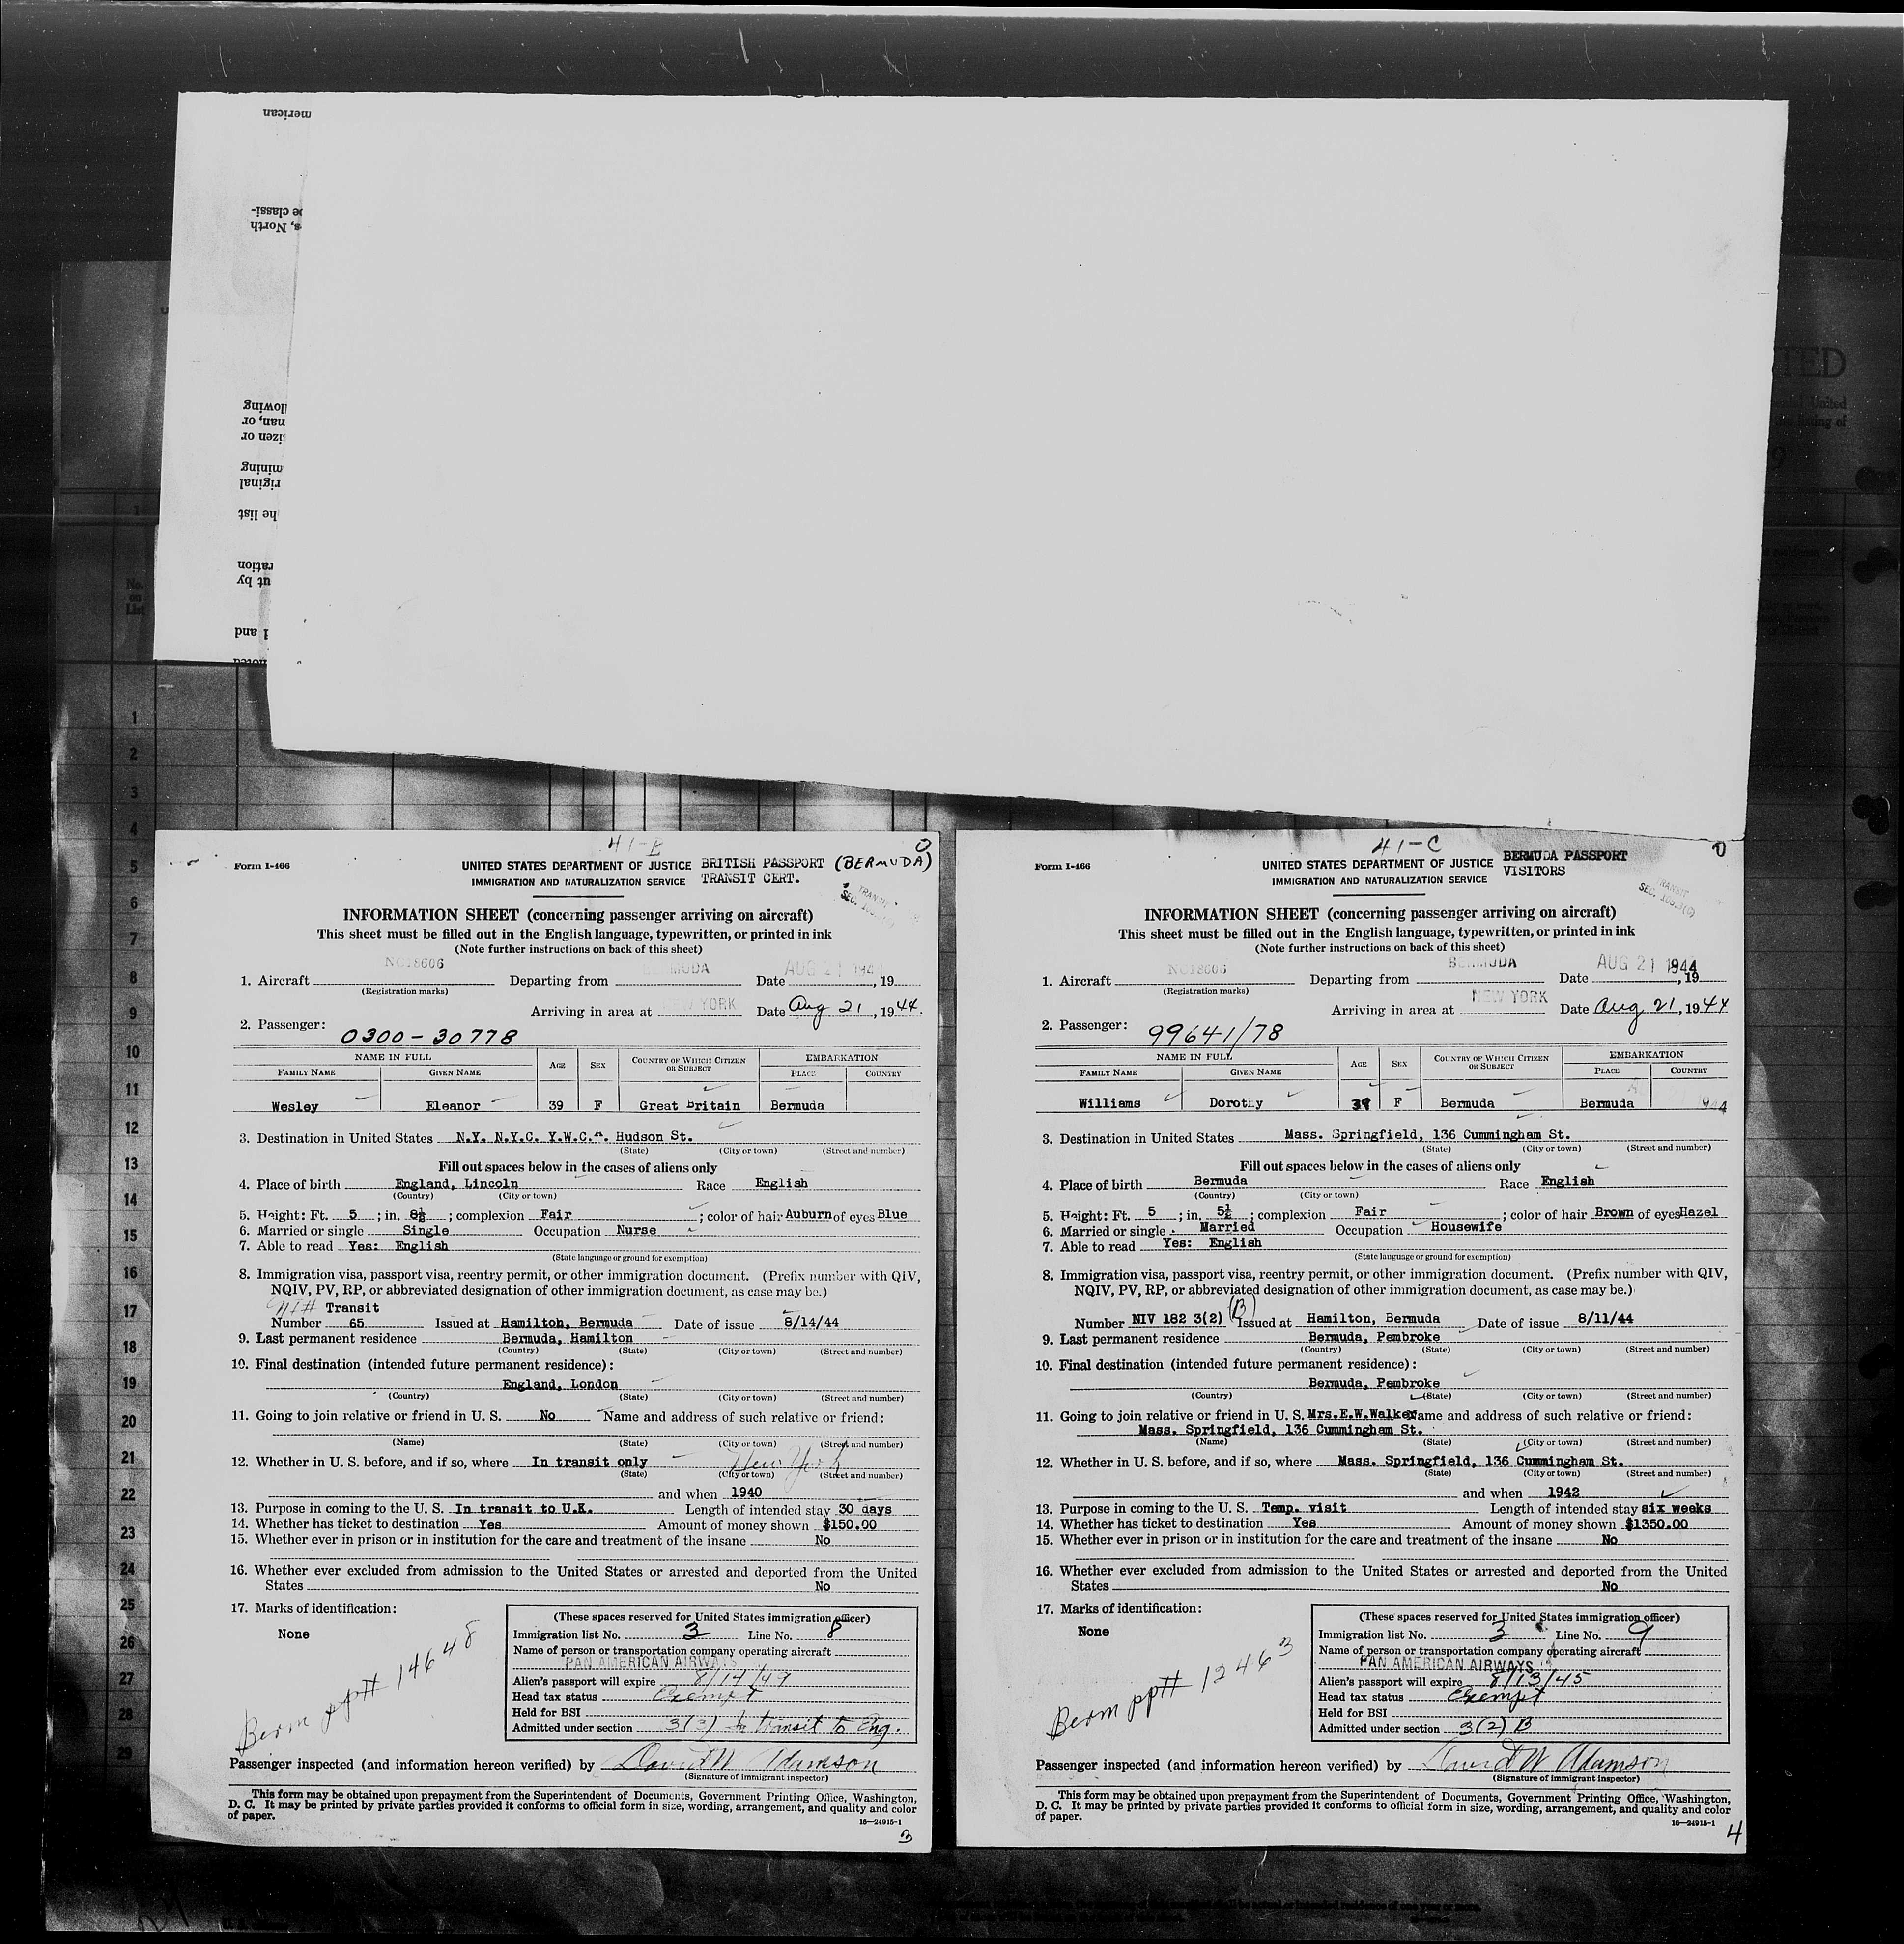 merican
be classi-
s, North
llowing
man, or
izen or
mining
riginal
he list
ration
ut by
d and
TED
United
listing of
No.
on
List
1
2
3
4
5
6
7
8
9
10
11
12
13
14
15
16
17
18
19
20
21
22
23
24
25
26
27
28
29
41-B
0
Form I-466
UNITED STATES DEPARTMENT OF JUSTICE BRITISH PASSPORT (BERMUDA)
IMMIGRATION AND NATURALIZATION SERVICE TRANSIT CERT.
TRANSIT
INFORMATION SHEET (concerning passenger arriving on aircraft)
This sheet must be filled out in the English language, typewritten, or printed in ink
(Note further instructions on back of this sheet)
NC18606 BERMUDA AUG 21 1944
1. Aircraft Departing from Date , 19
(Registration marks)
Arriving in area at NEW YORK Date Aug 21, 1944.
2. Passenger:
0300-30778
NAME IN FULL AGE SEX COUNTRY OF WHICH CITIZEN OR SUBJECT EMBARKATION
FAMILY NAME GIVEN NAME PLACE COUNTRY
Wesley Eleanor 39 F Great Britain Bermuda
3. Destination in United States N.Y. N.Y.C. Y.W.C.A. Hudson St.
(State) (City or town) (Street and number)
Fill out spaces below in the cases of aliens only
4. Place of birth England, Lincoln Race English
(Country) (City or town)
5. Height: Ft. 5 ; in. 8½ ; complexion Fair ; color of hair Auburn of eyes Blue
6. Married or single Single Occupation Nurse
7. Able to read Yes: English
(State language or ground for exemption)
8. Immigration visa, passport visa, reentry permit, or other immigration document. (Prefix number with QIV,
NQIV, PV, RP, or abbreviated designation of other immigration document, as case may be.)
Transit
Number 65 Issued at Hamilton, Bermuda Date of issue 8/14/44
9. Last permanent residence Bermuda, Hamilton
(Country) (State) (City or town) (Street and number)
10. Final destination (intended future permanent residence):
England, London
(Country) (State) (City or town) (Street and number)
11. Going to join relative or friend in U. S. No Name and address of such relative or friend:
(Name) (State) (City or town) (Street and number)
12. Whether in U. S. before, and if so, where In transit only New York
(State) (City or town) (Street and number)
and when 1940
13. Purpose in coming to the U. S. In transit to U.K. Length of intended stay 30 days
14. Whether has ticket to destination Yes Amount of money shown $150.00
15. Whether ever in prison or in institution for the care and treatment of the insane No
16. Whether ever excluded from admission to the United States or arrested and deported from the United
States No
17. Marks of identification:
None
Berm pp# 14648
(These spaces reserved for United States immigration officer)
Immigration list No. 3 Line No. 8
Name of person or transportation company operating aircraft
PAN AMERICAN AIRWAYS
Alien's passport will expire 8/14/49
Head tax status Exempt
Held for BSI
Admitted under section 3(3) In transit to Eng.
Passenger inspected (and information hereon verified) by David W Adamson
(Signature of immigrant inspector)
This form may be obtained upon prepayment from the Superintendent of Documents, Government Printing Office, Washington,
D. C. It may be printed by private parties provided it conforms to official form in size, wording, arrangement, and quality and color
of paper.
16—24915-1
3
41-C
0
Form I-466
UNITED STATES DEPARTMENT OF JUSTICE BERMUDA PASSPORT
IMMIGRATION AND NATURALIZATION SERVICE VISITORS
TRANSIT
INFORMATION SHEET (concerning passenger arriving on aircraft)
This sheet must be filled out in the English language, typewritten, or printed in ink
(Note further instructions on back of this sheet)
NC18606 BERMUDA AUG 21 1944
1. Aircraft Departing from Date , 19
(Registration marks)
Arriving in area at NEW YORK Date Aug 21, 1944
2. Passenger:
99641/78
NAME IN FULL AGE SEX COUNTRY OF WHICH CITIZEN OR SUBJECT EMBARKATION
FAMILY NAME GIVEN NAME PLACE COUNTRY
Williams Dorothy 39 F Bermuda Bermuda
3. Destination in United States Mass. Springfield, 136 Cummingham St.
(State) (City or town) (Street and number)
Fill out spaces below in the cases of aliens only
4. Place of birth Bermuda Race English
(Country) (City or town)
5. Height: Ft. 5 ; in. 5½ ; complexion Fair ; color of hair Brown of eyes Hazel
6. Married or single Married Occupation Housewife
7. Able to read Yes: English
(State language or ground for exemption)
8. Immigration visa, passport visa, reentry permit, or other immigration document. (Prefix number with QIV,
NQIV, PV, RP, or abbreviated designation of other immigration document, as case may be.)
Number NIV 182 3(2) (B) Issued at Hamilton, Bermuda Date of issue 8/11/44
9. Last permanent residence Bermuda, Pembroke
(Country) (State) (City or town) (Street and number)
10. Final destination (intended future permanent residence):
Bermuda, Pembroke
(Country) (State) (City or town) (Street and number)
11. Going to join relative or friend in U. S. Mrs.E.W.Walker ame and address of such relative or friend:
Mass. Springfield, 136 Cummingham St.
(Name) (State) (City or town) (Street and number)
12. Whether in U. S. before, and if so, where Mass. Springfield, 136 Cummingham St.
(State) (City or town) (Street and number)
and when 1942
13. Purpose in coming to the U. S. Temp. visit Length of intended stay six weeks
14. Whether has ticket to destination Yes Amount of money shown $1350.00
15. Whether ever in prison or in institution for the care and treatment of the insane No
16. Whether ever excluded from admission to the United States or arrested and deported from the United
States No
17. Marks of identification:
None
Berm pp# 12463
(These spaces reserved for United States immigration officer)
Immigration list No. 3 Line No. 9
Name of person or transportation company operating aircraft
PAN AMERICAN AIRWAYS
Alien's passport will expire 8/13/45
Head tax status Exempt
Held for BSI
Admitted under section 3(2) B
Passenger inspected (and information hereon verified) by David W Adamson
(Signature of immigrant inspector)
This form may be obtained upon prepayment from the Superintendent of Documents, Government Printing Office, Washington,
D. C. It may be printed by private parties provided it conforms to official form in size, wording, arrangement, and quality and color
of paper.
16—24915-1
4